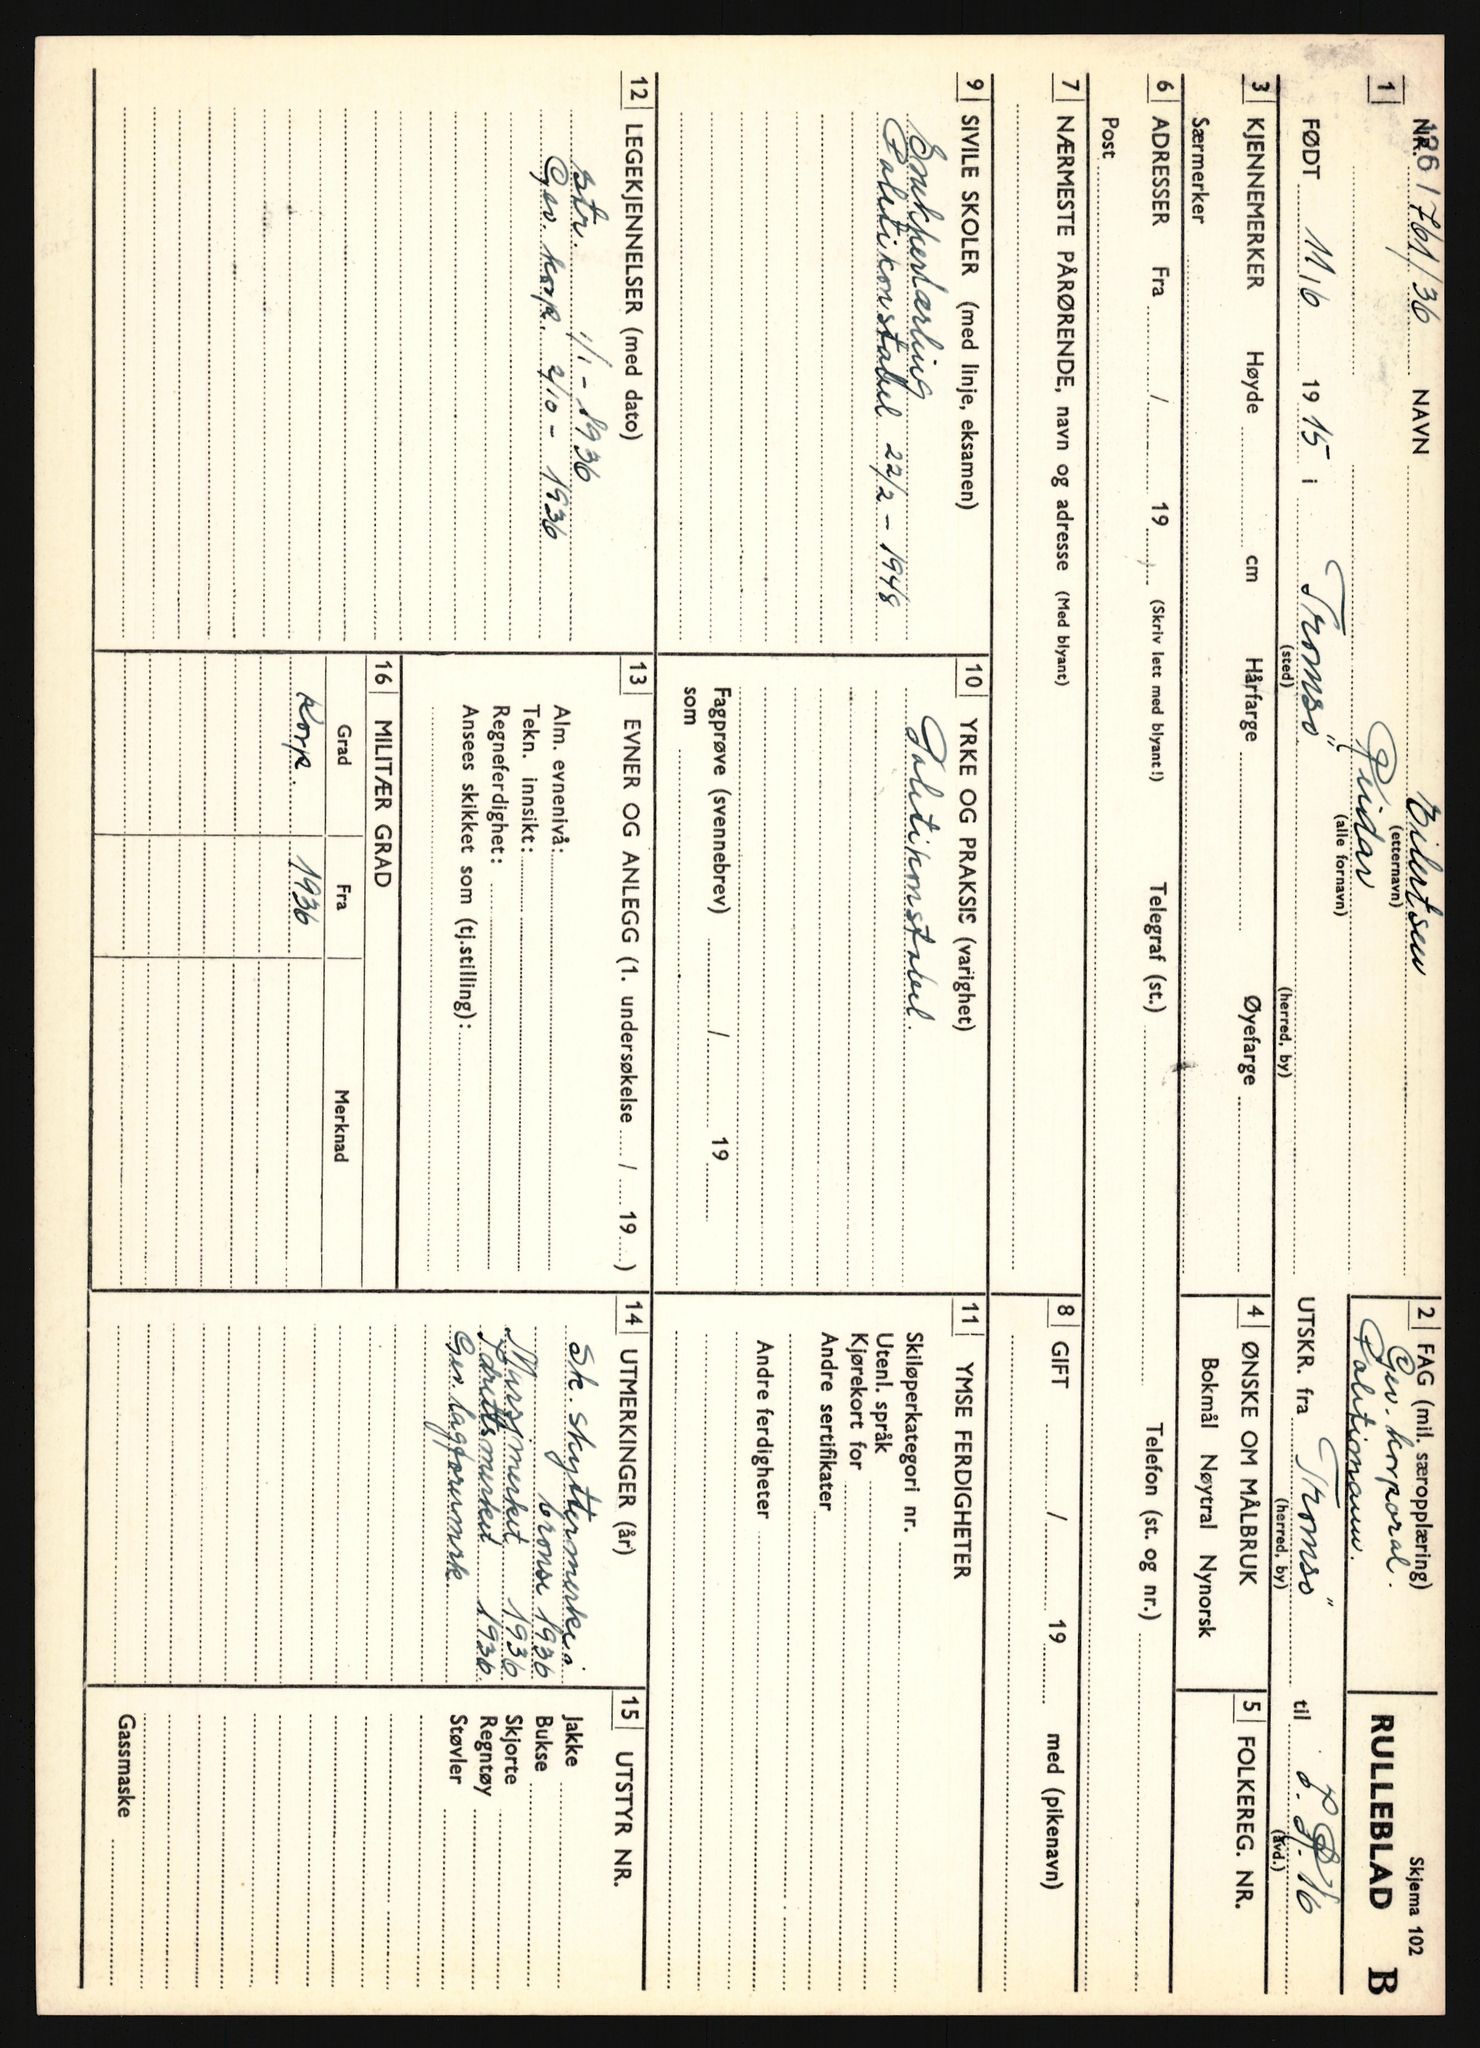 Skjema 102
RULLEBLAD B
1 NR. 126/761/36 NAVN Eilertsen
(etternavn)
Reidar
(alle fornavn)
2 FAG (mil. særopplæring)
Gev. korporal.
Politimann.
FØDT 11/6 1915 i Tromsö
(sted) (herred, by)
UTSKR. fra Tromsö til I.R. 16
(herred, by) (avd.)
3 KJENNEMERKER Høyde cm Hårfarge Øyefarge
Særmerker
4 ØNSKE OM MÅLBRUK
Bokmål Nøytral Nynorsk
5 FOLKEREG. NR.
6 ADRESSER Fra / 19 (Skriv lett med blyant!) Telegraf (st.) Telefon (st. og nr.)
Post
7 NÆRMESTE PÅRØRENDE, navn og adresse (Med blyant)
8 GIFT / 19 med (pikenavn)
9 SIVILE SKOLER (med linje, eksamen)
Snekkerlærling
Politikonstabel 22/2 - 1948
10 YRKE OG PRAKSIS (varighet)
Politikonstabel.
Fagprøve (svennebrev) / 19
som
11 YMSE FERDIGHETER
Skiløperkategori nr.
Utenl. språk
Kjørekort for
Andre sertifikater
Andre ferdigheter
12 LEGEKJENNELSER (med dato)
Str. 1/1 - 1936
Gev. korp. 2/10 - 1936
13 EVNER OG ANLEGG (1. undersøkelse / 19 )
Alm. evnenivå:
Tekn. innsikt:
Regneferdighet:
Ansees skikket som (tj.stilling):
14 UTMERKINGER (år)
Sk. skyttermerke i
bronse 1936
Marsjmerket 1936
Idrettsmerket 1936.
Gev. lagförermrk.
15 UTSTYR NR.
Jakke
Bukse
Skjorte
Regntøy
Støvler
Gassmaske
16 MILITÆR GRAD
Grad Fra Merknad
Korp. 1936